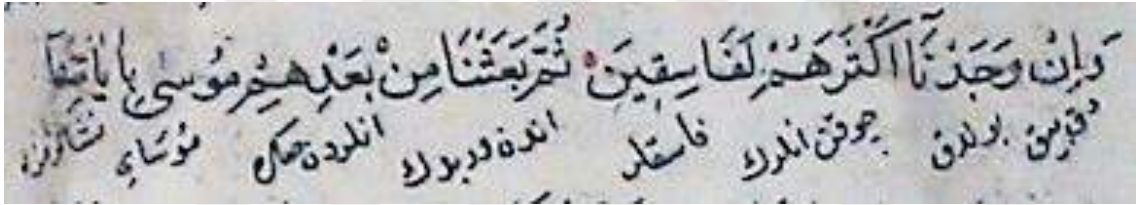 وَاِنْ وَجَدْنَٓا اَكْثَرَهُمْ لَفَاسِقِينَ ثُمَّ بَعَثْنَا مِنْ بَعْدِهِمْ مُوسٰى بِاٰيَاتِنَا
بولدق چوقن انلرك فاسقلر اندن انلردن صكره موساي